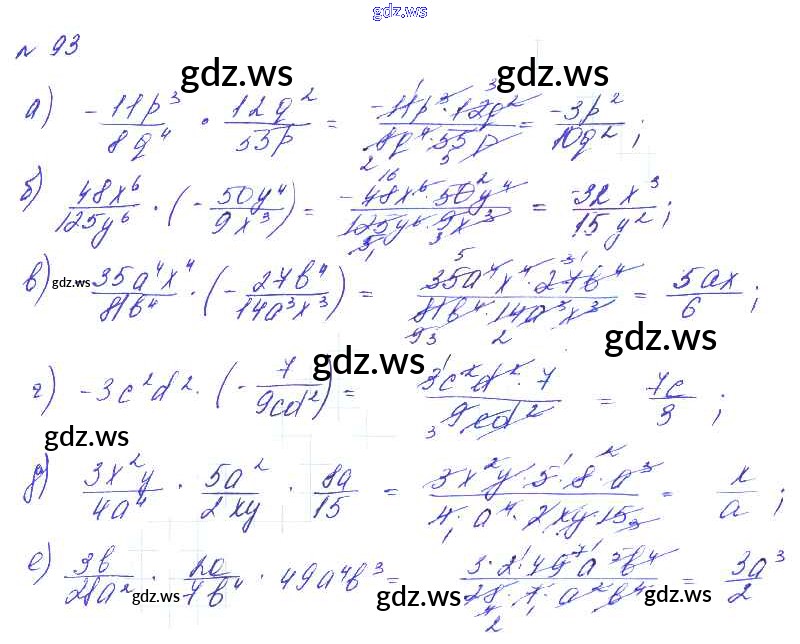 gdz.ws
№ 93
gdz.ws gdz.ws
а) -11p³/8q⁴ · 12q²/55p = -11p³·12q²/8q⁴·55p = -3p²/10q² ;
б) 48x⁶/125y⁶ · (-50y⁴/9x³) = -48x⁶·50y⁴/125y⁶·9x³ = -32x³/15y² ;
в) gdz.ws 35a⁴x⁴/81b⁴ · (-27b⁴/14a³x³) = 35a⁴x⁴·27b⁴/81b⁴·14a³x³ = 5ax/6 ;
gdz.ws gdz.ws
г) -3c²d² · (-7/9cd²) = 3c²d²·7/9cd² = 7c/3 ;
gdz.ws
д) 3x²y/4a⁴ · 5a²/2xy · 8a/15 = 3x²y·5·8·a³/4·a⁴·2xy·15 = x/a ;
е) 3b/28a² · 2a/7b⁴ · 49a⁴b³ = 3·2·49a⁵b⁴/28·7·a²b⁴ = 3a³/2
gdz.ws gdz.ws gdz.ws